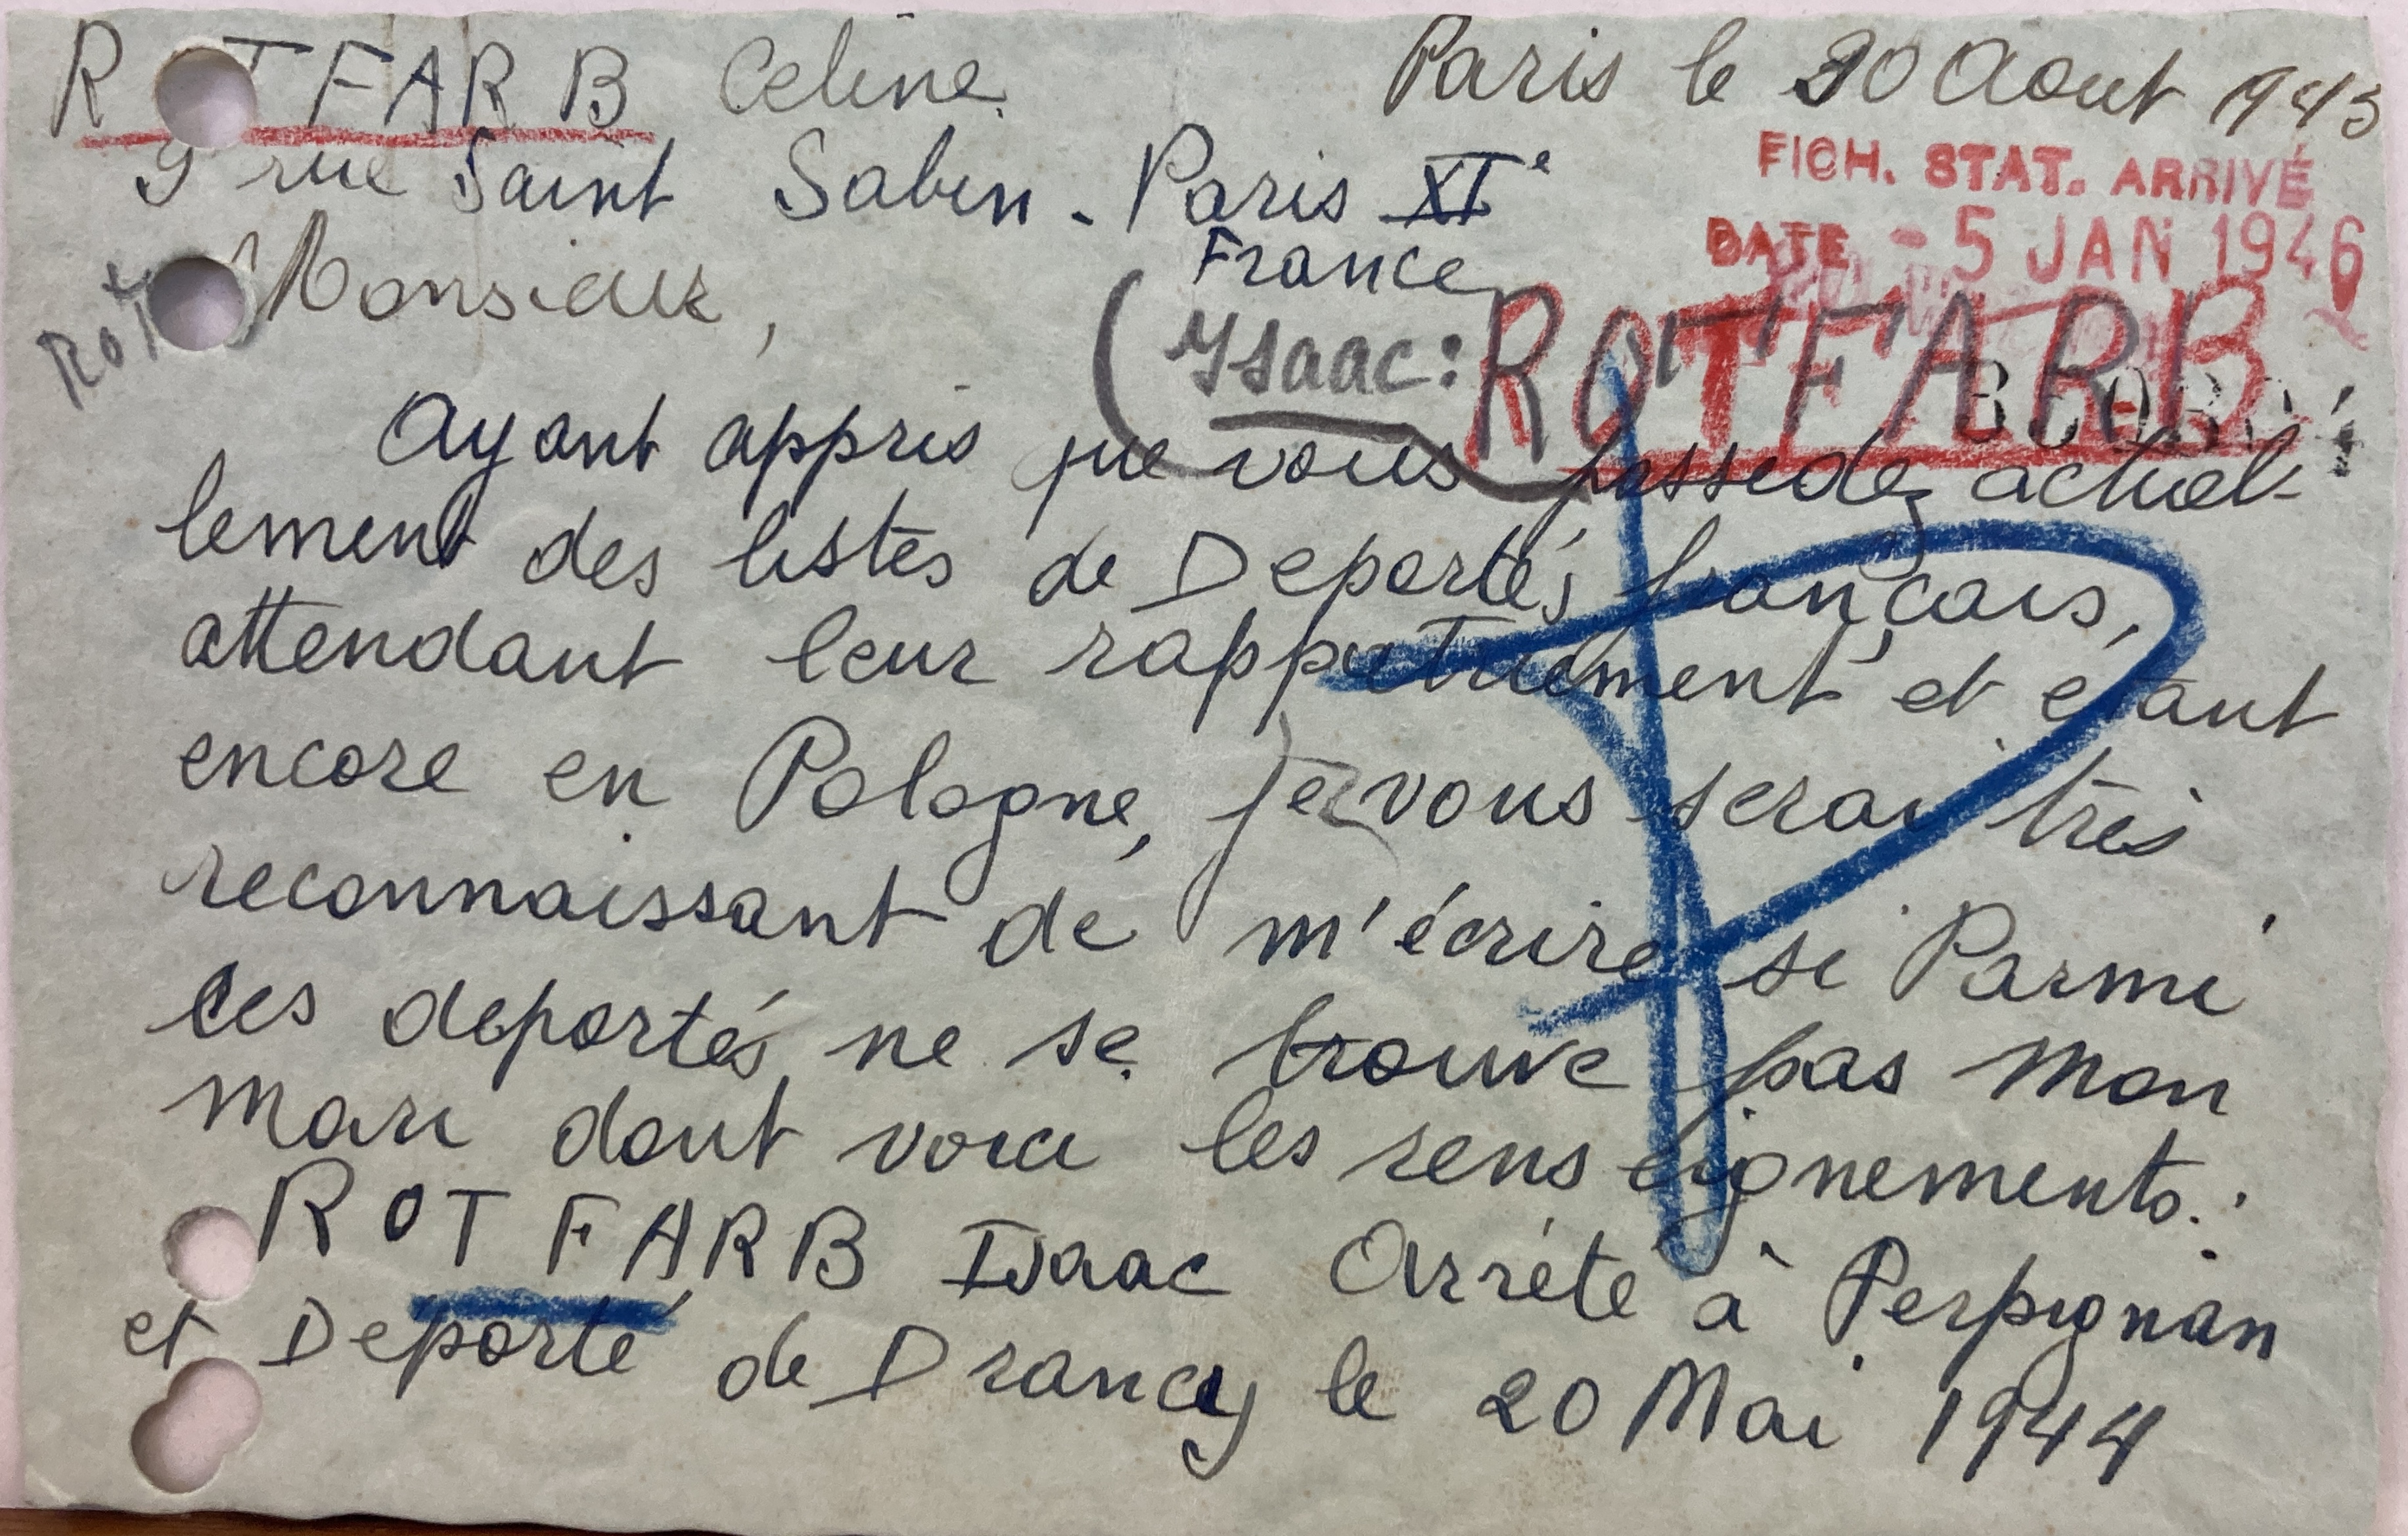 ROTFARB Celine. Paris le 30 Aout 1945
9 rue Saint Sabin - Paris XIe
FICH. STAT. ARRIVÉ
DATE - 5 JAN 1946
France
Rot
Monsieur,
(Ysaac: ROTFARB
Ayant appris que vous possedez actuel-
lement des listes de Deportés français,
attendant leur rappatriement et etant
encore en Pologne, je vous serai très
reconnaissant de m'écrire si Parmi
ces deportés ne se trouve pas mon
mari dont voici les renseignements:
ROTFARB Isaac Arrété à Perpignan
et Deporté de Drancy le 20 Mai 1944